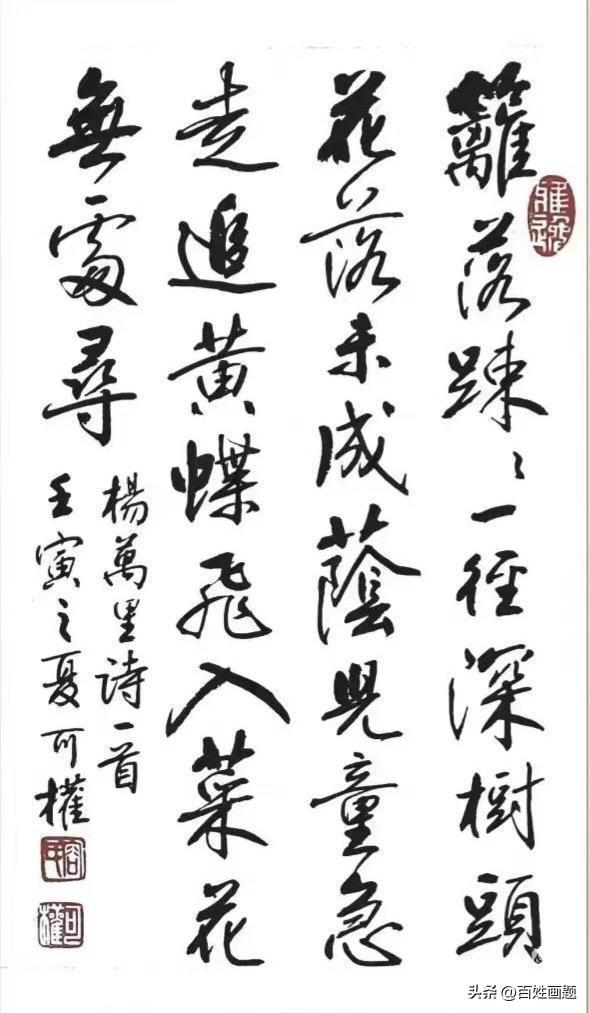 籬落踈〻一徑深樹頭
花落未成蔭兒童急
走追黃蝶飛入菜花
無處尋
楊萬里詩一首
壬寅之夏可權
可權
头条 @百姓画题